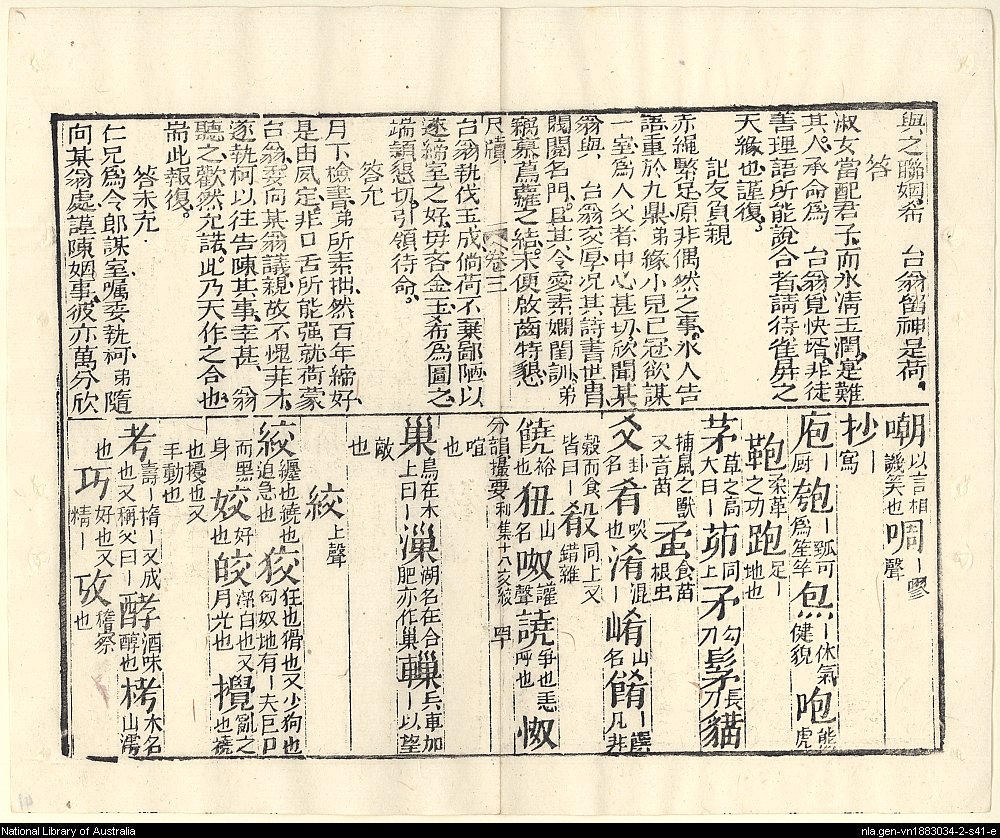 與之聯姻希　台翁留神是荷。
答
淑女當配君子,而氷淸玉潤,寔難
其人,承命爲　台翁覓快壻,非徒
善理語所能說合者,請待雀屏之
天緣也,謹復。
記友負親
赤繩繫足,原非偶然之事,氷人告
語重於九鼎,弟緣小兒已冠,欲謀
一室,爲人父者,中心甚切,欣聞某
翁與　台翁交厚,况其詩書世胄,
閥閱名門,且其令愛素嫻閨訓,弟
竊慕蔦蘿之結,未便啟齒,特懇
尺牘　卷三
台翁執伐玉成,倘荷不棄鄙陋,以
遂締室之好,毋吝金玉,希爲圖之,
端頴懇切,引領待命。
答允
月下檢書,弟所素拙,然百年締好,
是由夙定,非口舌所能强就,荷蒙
台翁委向某翁議親,故不愧菲才,
遂執柯以往,告陳其事,幸甚　翁
聽之,歡然允諾,此乃天作之合也,
耑此報復。
答未允
仁兄爲令郎謀室,囑委執柯,弟隨
向某翁處謹陳姻事,彼亦萬分欣
嘲以言相譏笑也 啁丨嘐聲
抄丨寫
庖丨厨 匏丨瓠可爲笙竽 炰丨烋氣健貌 咆熊虎
鞄柔革之功 跑足丨地也
茅草之高大曰丨 茆上同 矛勾刀 髳長刀 貓
捕鼠之獸又音苗 蝥食苗根虫
爻卦名 肴啖也 淆混丨 崤山名 餚丨饌凡非
穀而食曰丨 殽同上又錯雜
饒裕也 狃山名 呶讙聲 譊爭也恚呼也 怓
分韻撮要利集十八交絞
喧也
巢鳥在木上曰丨 漅湖名在合肥亦作巢 轈兵車加丨以望
敵也
絞上聲
絞纏也繞也迫急也 狡狂也猾也又少狗也匈奴地有丨犬巨口
而黑身 姣好也 皎月光也潔白也又 攪亂之也撓
也擾也又手動也
考壽丨楕丨又成也又稱父曰丨 酵酒味醇也 栲木名山濡
也 巧好也又精丨 攷稽察也
National Library of Australia
nla.gen-vn1883034-2-s41-e